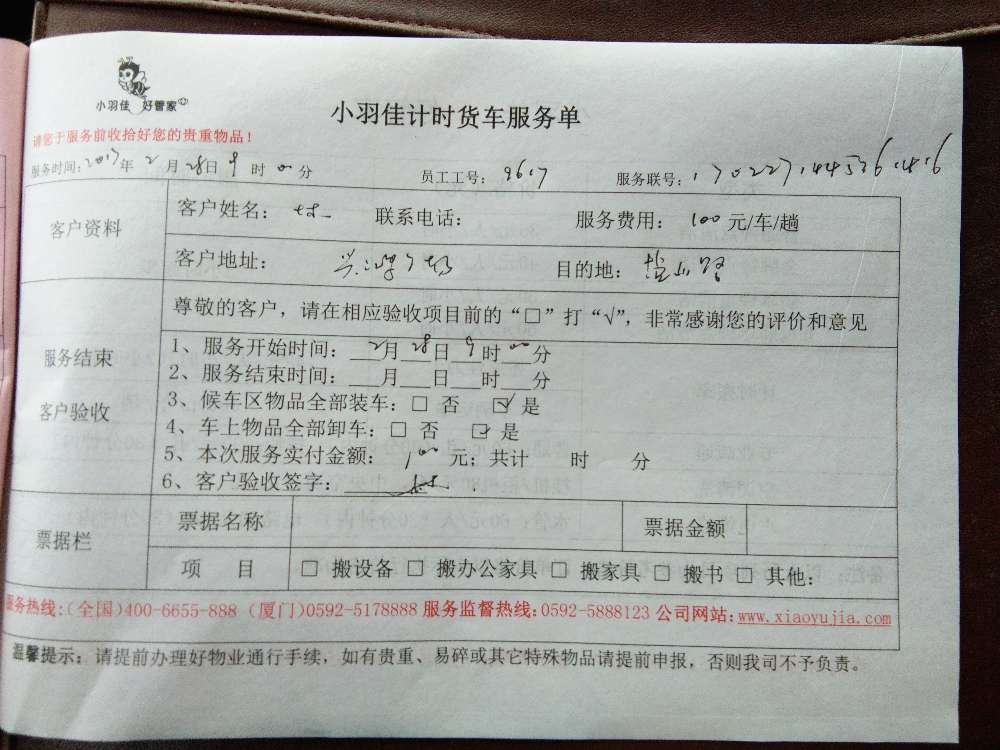 小羽佳 好管家
小羽佳计时货车服务单
请您于服务前收拾好您的贵重物品！
服务时间：2017年2月28日9时00分 员工工号：9617 服务联号：
客户资料
客户姓名： 联系电话： 服务费用：100元/车/趟
客户地址： 目的地：
尊敬的客户，请在相应验收项目前的“□”打“√”，非常感谢您的评价和意见
服务结束
客户验收
1、服务开始时间：2月28日9时00分
2、服务结束时间：___月___日___时___分
3、候车区物品全部装车：□ 否 ☑ 是
4、车上物品全部卸车：□ 否 ☑ 是
5、本次服务实付金额：100元；共计 时 分
6、客户验收签字：
票据栏
票据名称 票据金额
项 目 □ 搬设备 □ 搬办公家具 □ 搬家具 □ 搬书 □ 其他：
服务热线：（全国）400-6655-888（厦门）0592-5178888 服务监督热线：0592-5888123 公司网站：www.xiaoyujia.com
温馨提示：请提前办理好物业通行手续，如有贵重、易碎或其它特殊物品请提前申报，否则我司不予负责。